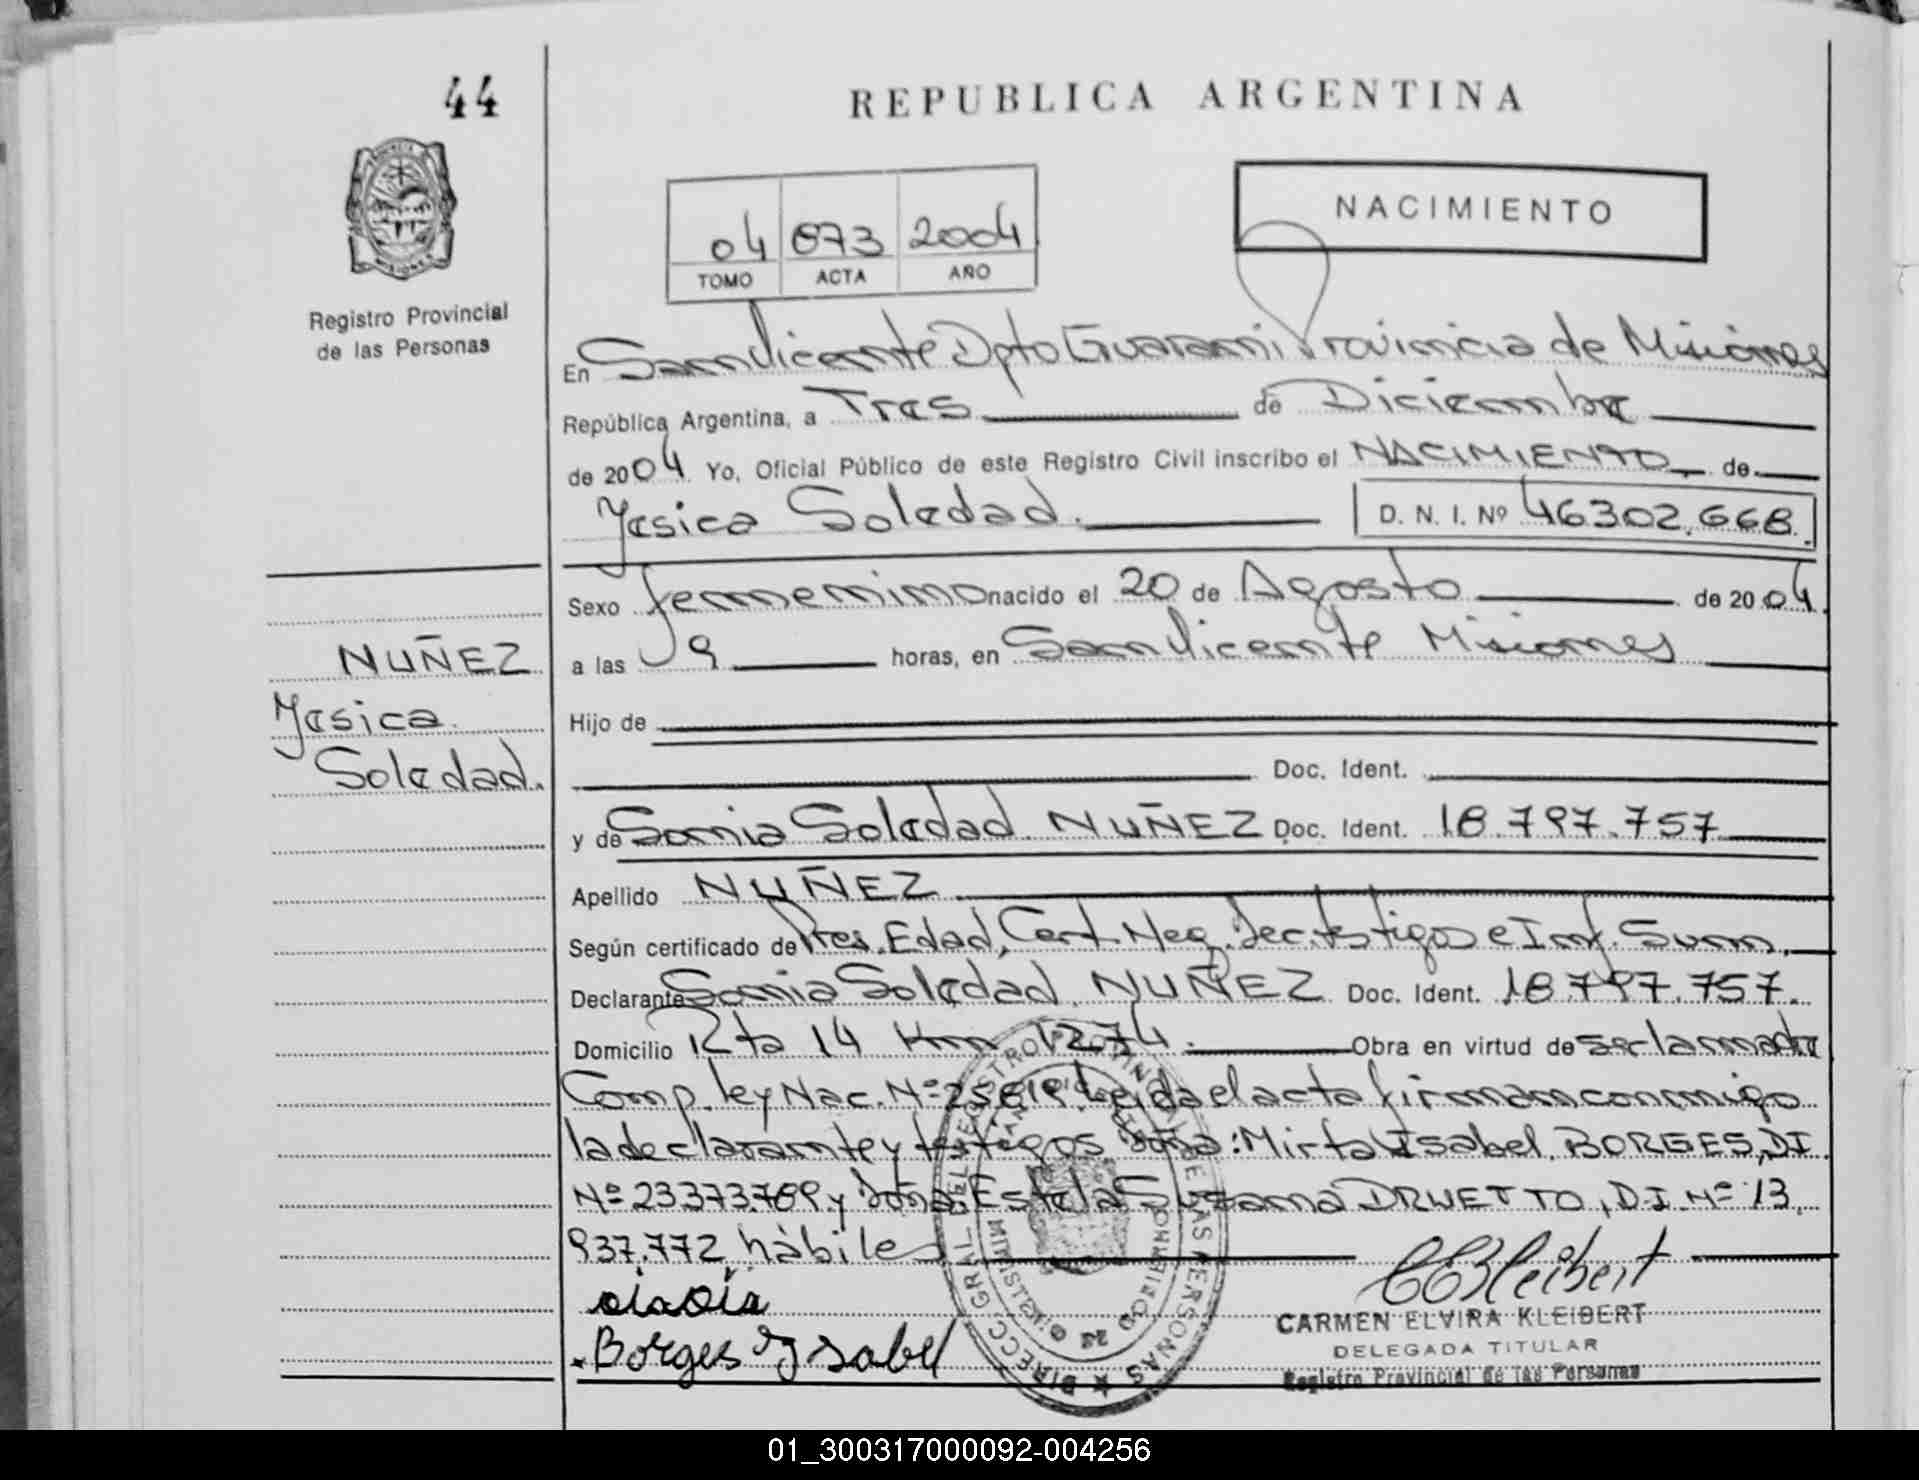 44
REPUBLICA ARGENTINA
NACIMIENTO
04 073 2004
TOMO ACTA AÑO
Registro Provincial
de las Personas
En San Vicente Dpto Guarani Provincia de Misiones
República Argentina, a Tres de Diciembre
de 2004 Yo, Oficial Público de este Registro Civil inscribo el NACIMIENTO de
Yesica Soledad. D. N. I. Nº 46302.668.
Sexo femenino nacido el 20 de Agosto de 2004.
NUÑEZ
Yesica
Soledad.
a las 9 horas, en San Vicente Misiones
Hijo de
Doc. Ident.
y de Sonia Soledad NUÑEZ Doc. Ident. 18.797.757
Apellido NUÑEZ
Según certificado de Pres. Edad, Cert. Neg. Dec. testigos e Inf. Sum.
Declarante Sonia Soledad NUÑEZ Doc. Ident. 18.797.757.
Domicilio Rta 14 Km 1274. Obra en virtud de ser la madre
Comp. ley Nac. Nº 25819. Leida el acta firman conmigo
la declarante y testigos Doña: Mirta Isabel BORGES, DI
Nº 23373.789 y Doña Estela Susana DRUETTO, D.I. Nº 13.
937.772 hàbiles
Borges Ysabel
CARMEN ELVIRA KLEIBERT
DELEGADA TITULAR
Registro Provincial de las Personas
01_300317000092-004256